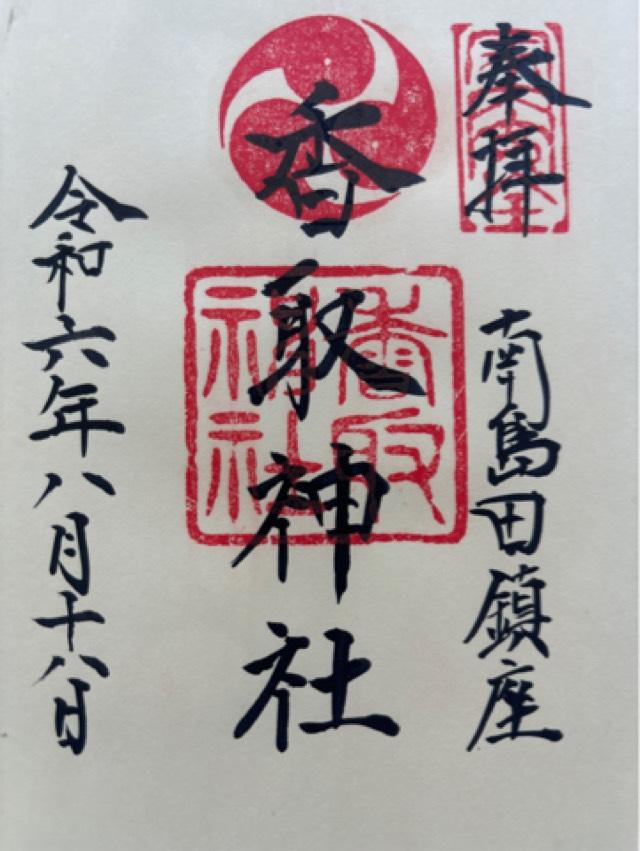 奉拝
南島田鎮座
香取神社
香取神社
令和六年八月十八日